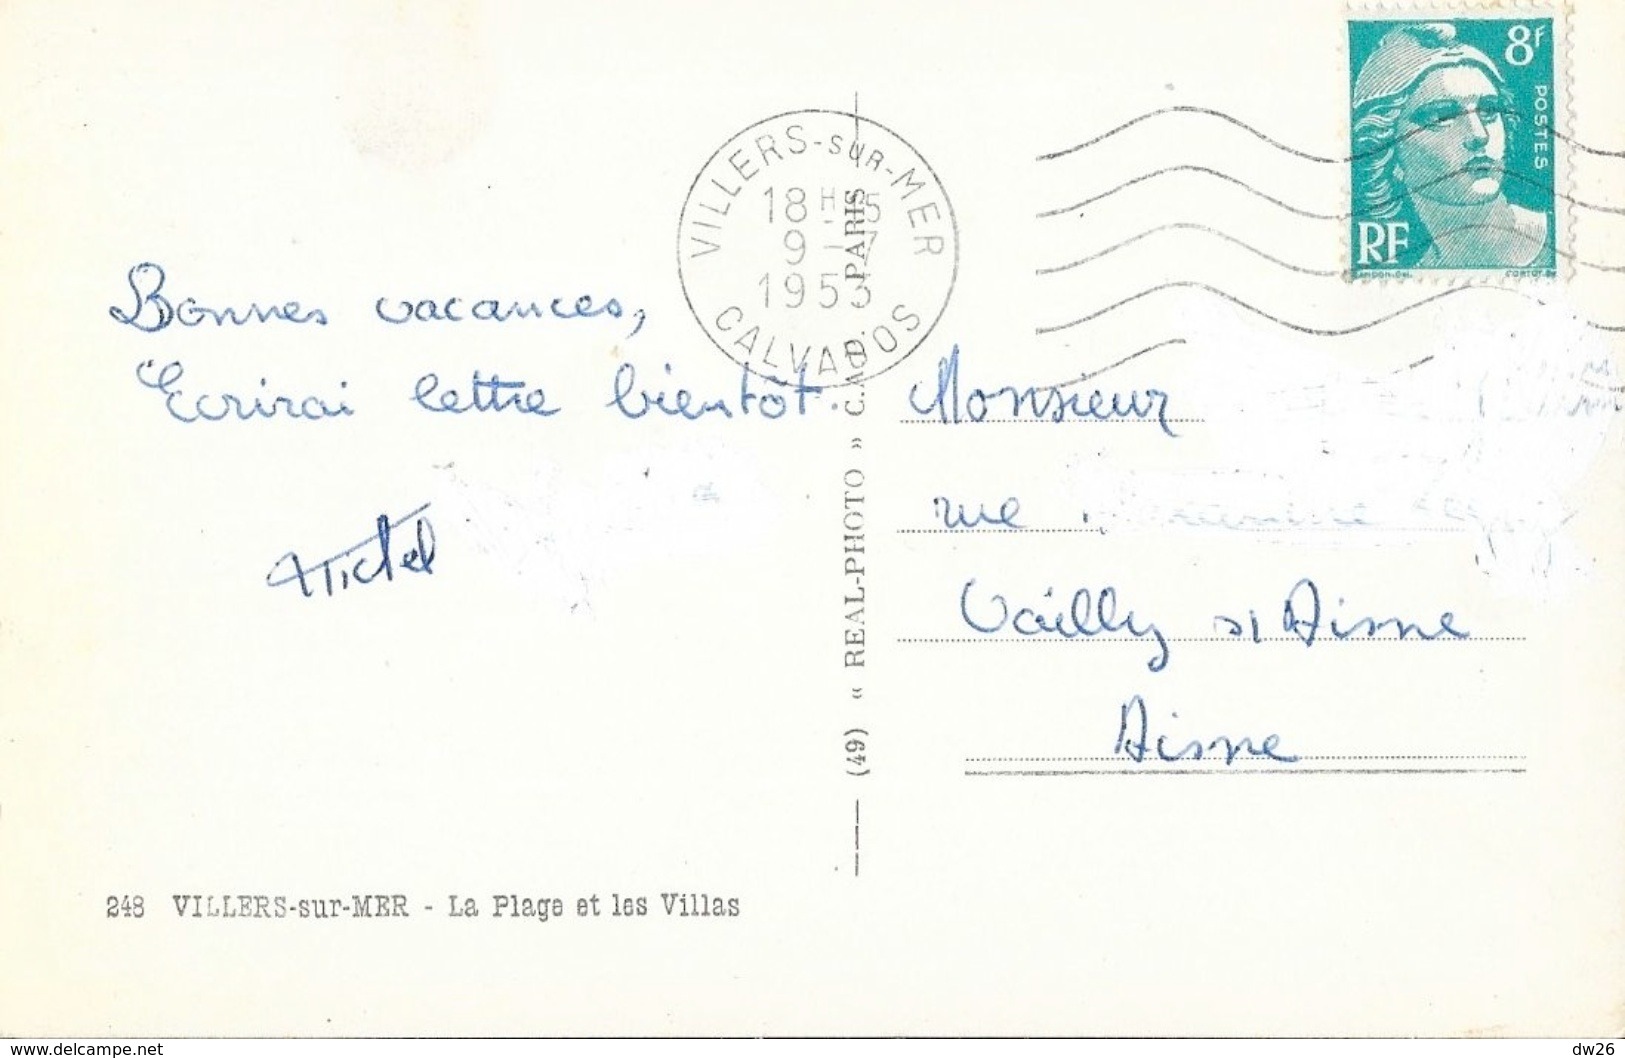 8F
POSTES
RF
GANDON.DEL.
VILLERS-SUR-MER
18H 15
9-7
1953
CALVADOS
Bonnes vacances,
Ecrirai lettre bientôt.
Michel
Monsieur
rue
Vailly s/ Aisne
Aisne
(49) « REAL-PHOTO » C.A.P. PARIS
248 VILLERS-sur-MER - La Plage et les Villas
www.delcampe.net
dw26